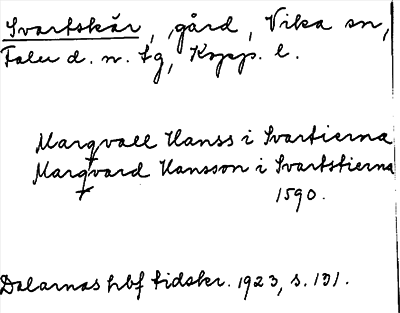 Svartskär, gård, Vika sn,
Falu d. n. tg, Kopp. l.
Marqvall Hanss i Svartierna
Marqvard Hansson i Svartstierna
1590.
Dalarnas hbf tidskr. 1923, s. 131.